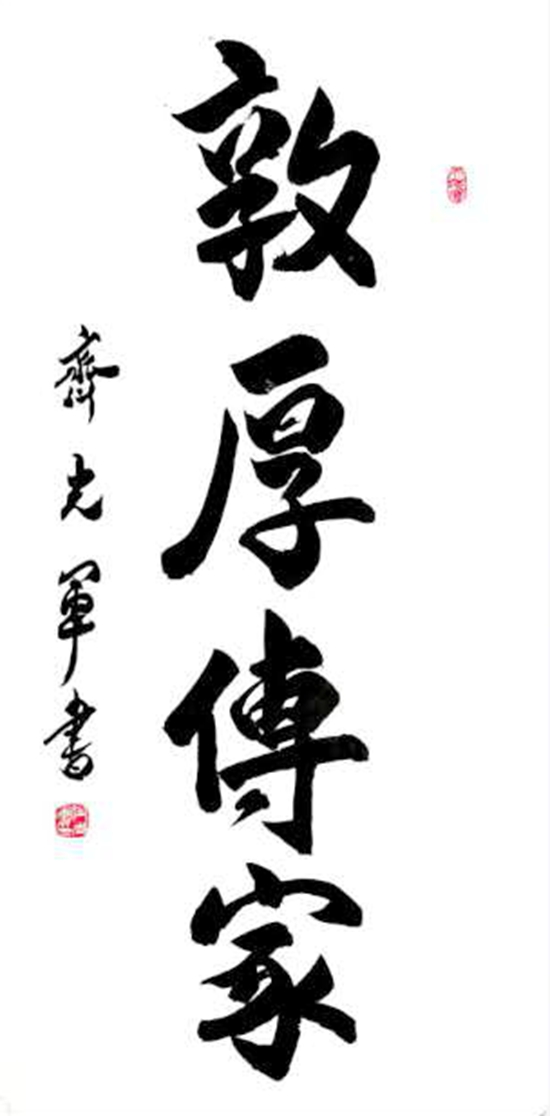 敦厚傳家
齊光軍書